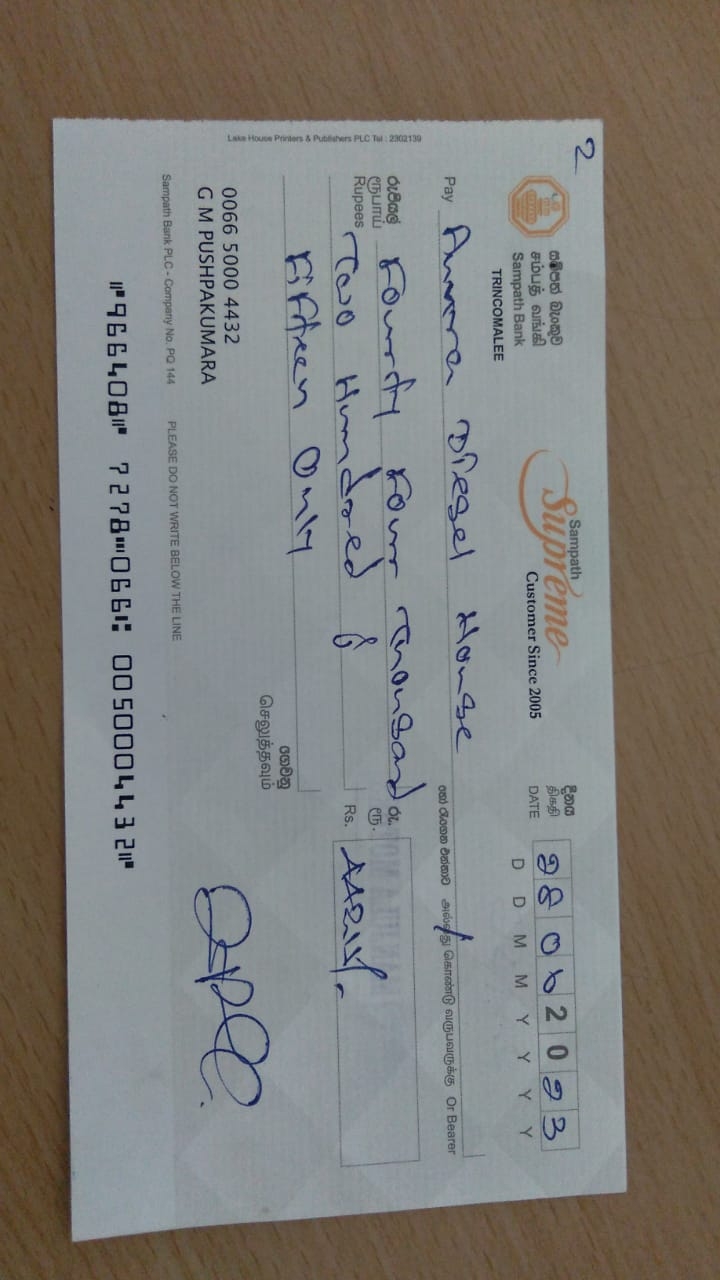 2
සම්පත් බැංකුව
சம்பத் வங்கி
Sampath Bank
TRINCOMALEE
Sampath
Supreme
Customer Since 2005
දිනය
திகதி
DATE 28 06 2023
D D M M Y Y Y Y
Pay Ammara Diesel House හෝ රැගෙන එන්නාට அல்லது கொண்டு வருபவருக்கு Or Bearer
රුපියල්
ரூபாய்
Rupees
Fourty Four Thousand
Two Hundred &
Fifteen Only
ගෙවනු
செலுத்தவும்
රු.
ரூ.
Rs. 44215/-
0066 5000 4432
G M PUSHPAKUMARA
Sampath Bank PLC - Company No. PQ 144 PLEASE DO NOT WRITE BELOW THE LINE
⑈966408⑈ 7278⑉066⑆ 0050004432⑈
Lake House Printers & Publishers PLC Tel : 2302139